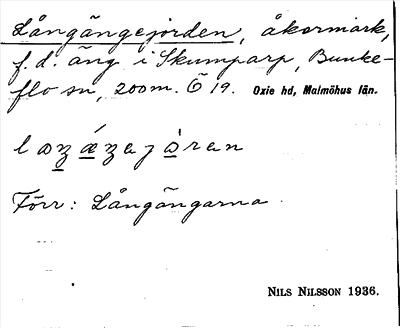 Långängejorden, åkermark,
f. d. äng i Skumparp, Bunke-
flo sn, 200 m. Ö 19. Oxie hd, Malmöhus län.
Förr: Långängarna.
NILS NILSSON 1936.